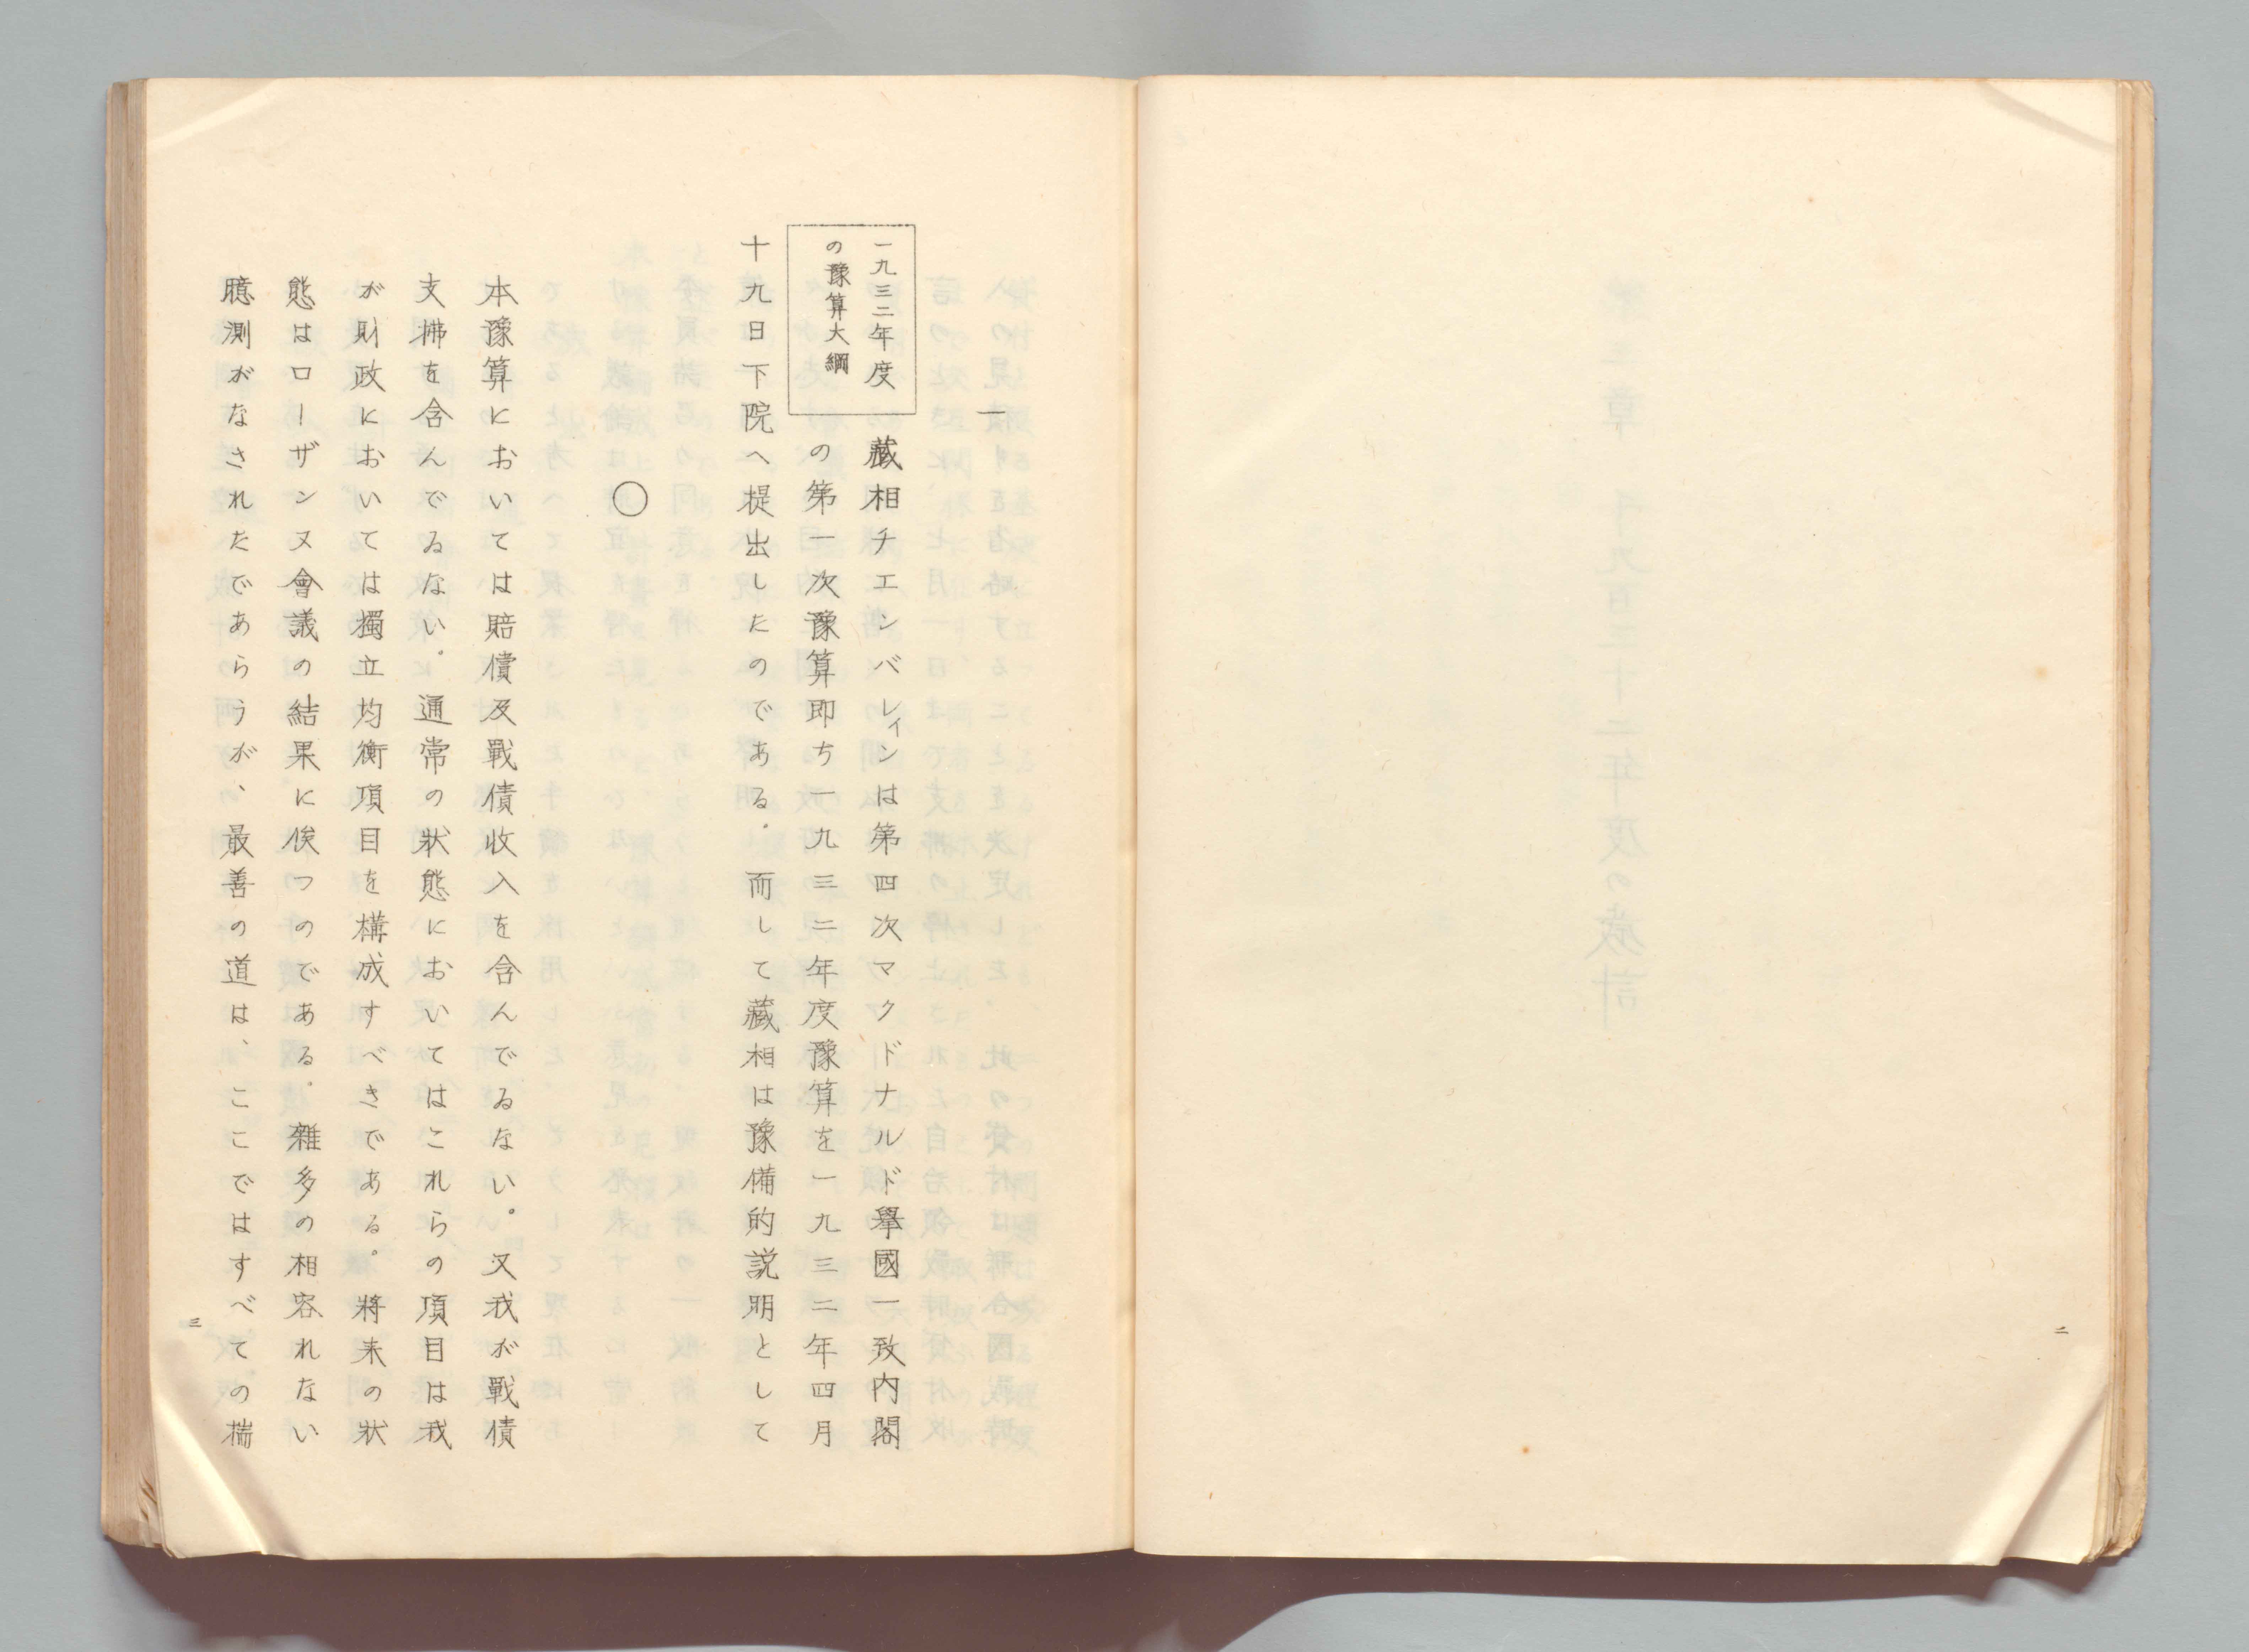 二
一
一九三二年度
の豫算大綱
藏相チエンバレィンは第四次マクドナルド擧國一致内閣
の第一次豫算即ち一九三二年度豫算を一九三二年四月
十九日下院へ提出したのである。而して藏相は豫備的説明として
〇
本豫算においては賠償及戰債收入を含んでゐない。又我が戰債
支拂を含んでゐない。通常の狀態においてはこれらの項目は我
が財政においては獨立均衡項目を構成すべきである。將来の狀
態はローザンヌ會議の結果に俟つのである。雜多の相容れない
臆測がなされたであらうが、最善の道は、ここではすべての揣
三